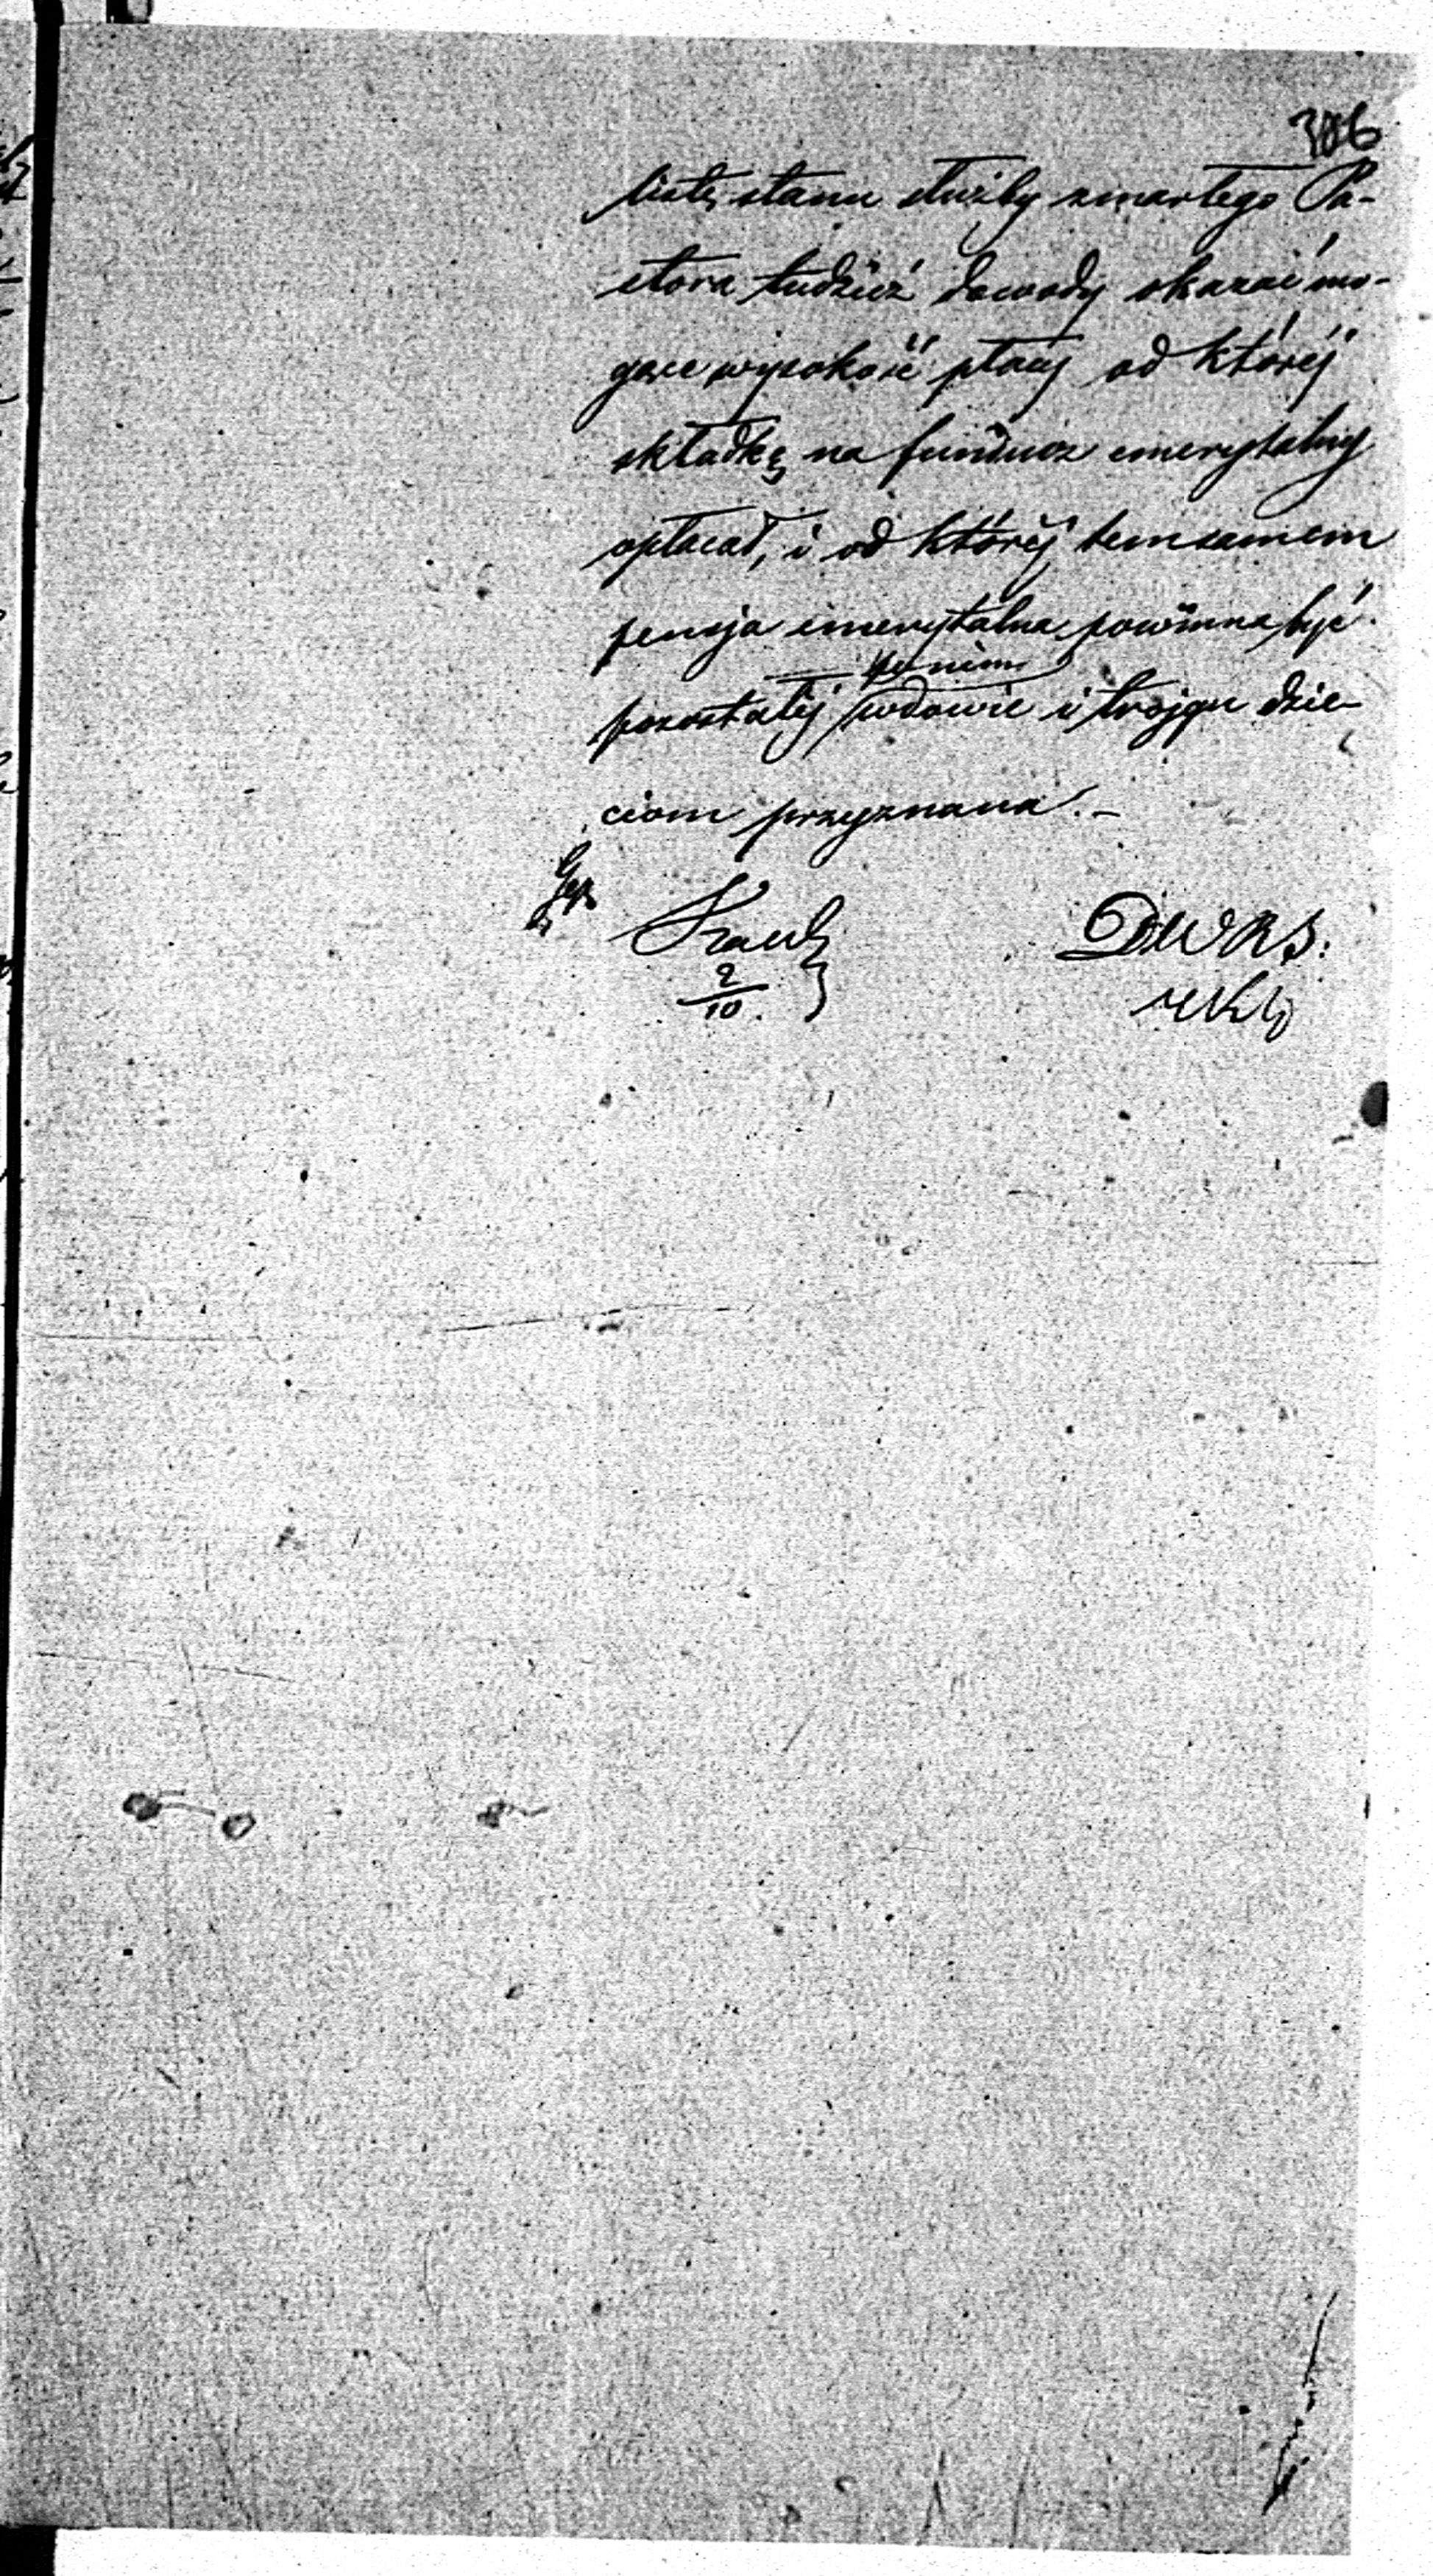 306
listę stanu służby zmarłego Pa-
stora tudzież dowody okazać mo-
gące wysokość płacy od któréj
składkę na fundusz emerytalny
opłacał, i od któréj temsamem
pensja emerytalna powinna być
po nim
pozostałéj wdowie i trojgu dzie-
ciom przyznana.-
2/10.